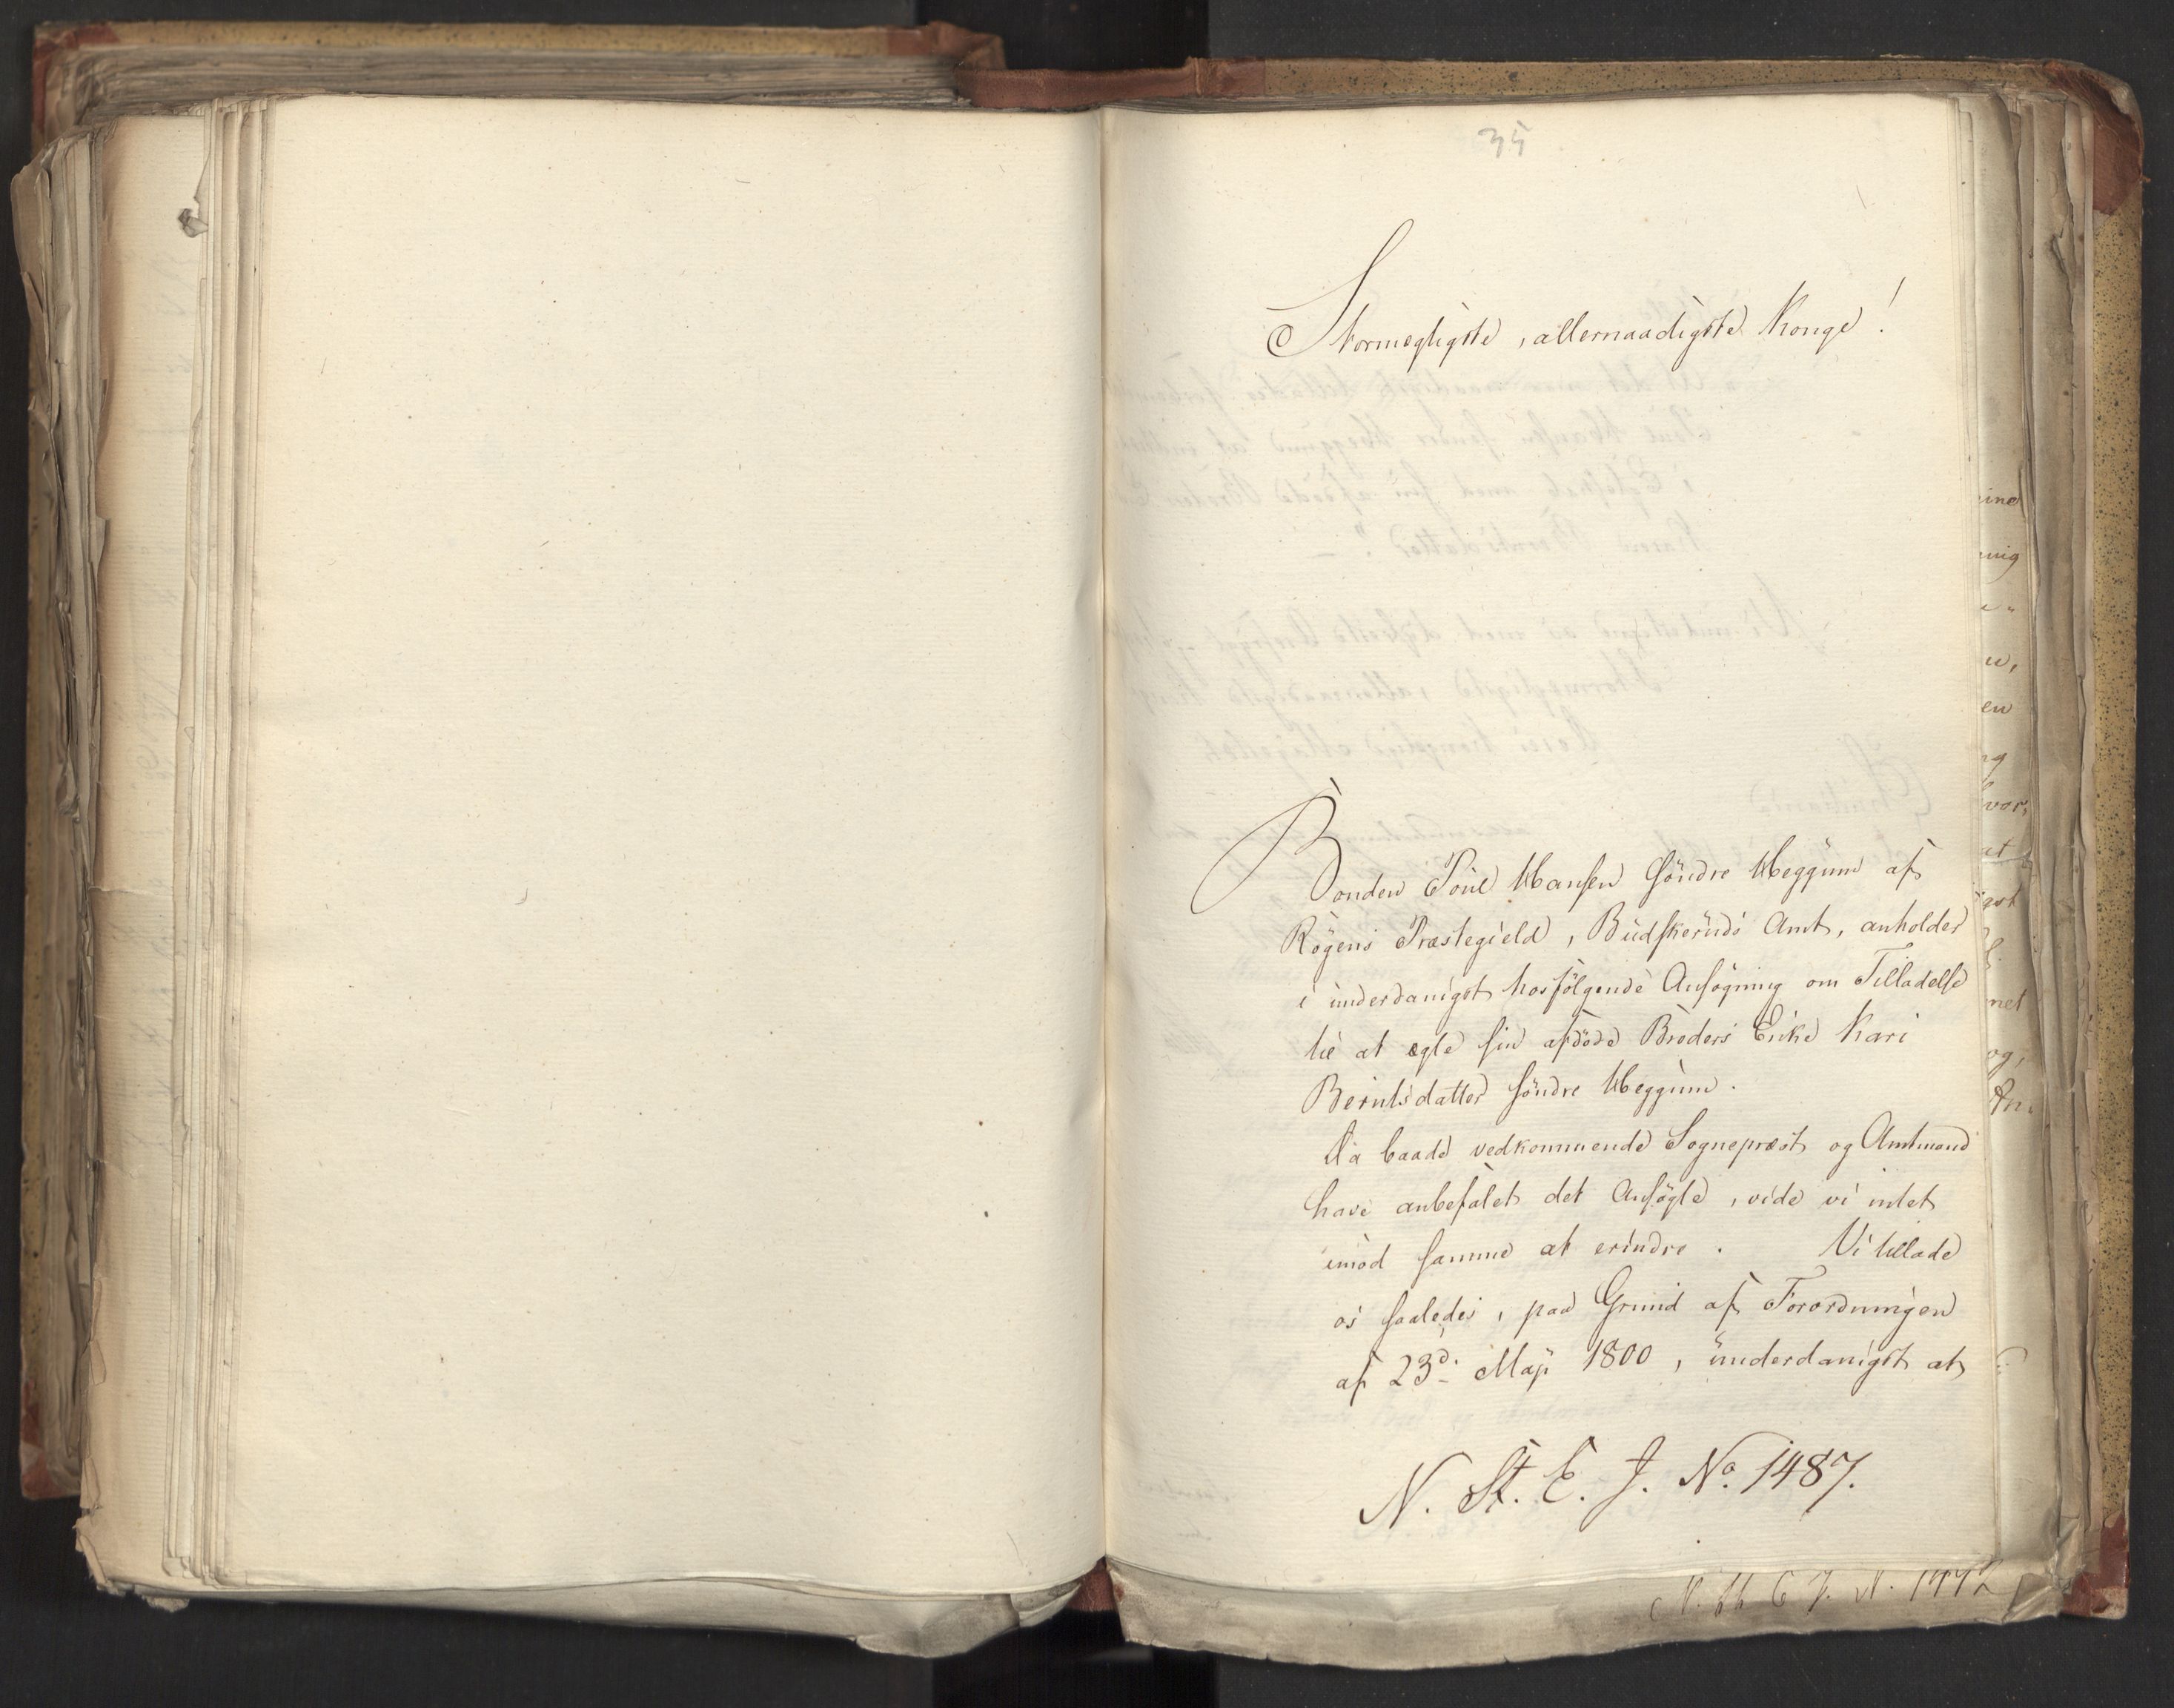 35
Stormegtigste, allernaadigste Konge!
Bonden Poul Hansen söndre Heggum af
Rögens Præstegield, Budskeruds Amt, anholder
i underdanigst hosfölgende Ansögning om Tilladelse
til at egte sin afdöde Broders Enke Kari
Berntsdatter söndre Heggum.
Da baade vedkommende Sognepræst og Amtmand
have anbefalet det Ansögte, vide vi intet
imod samme at erindre. Vi tillade
os saaledes, paa Grund af Forordningen
af 23d. Maji 1800, underdanigst at
N. St. E. J. No. 1487.